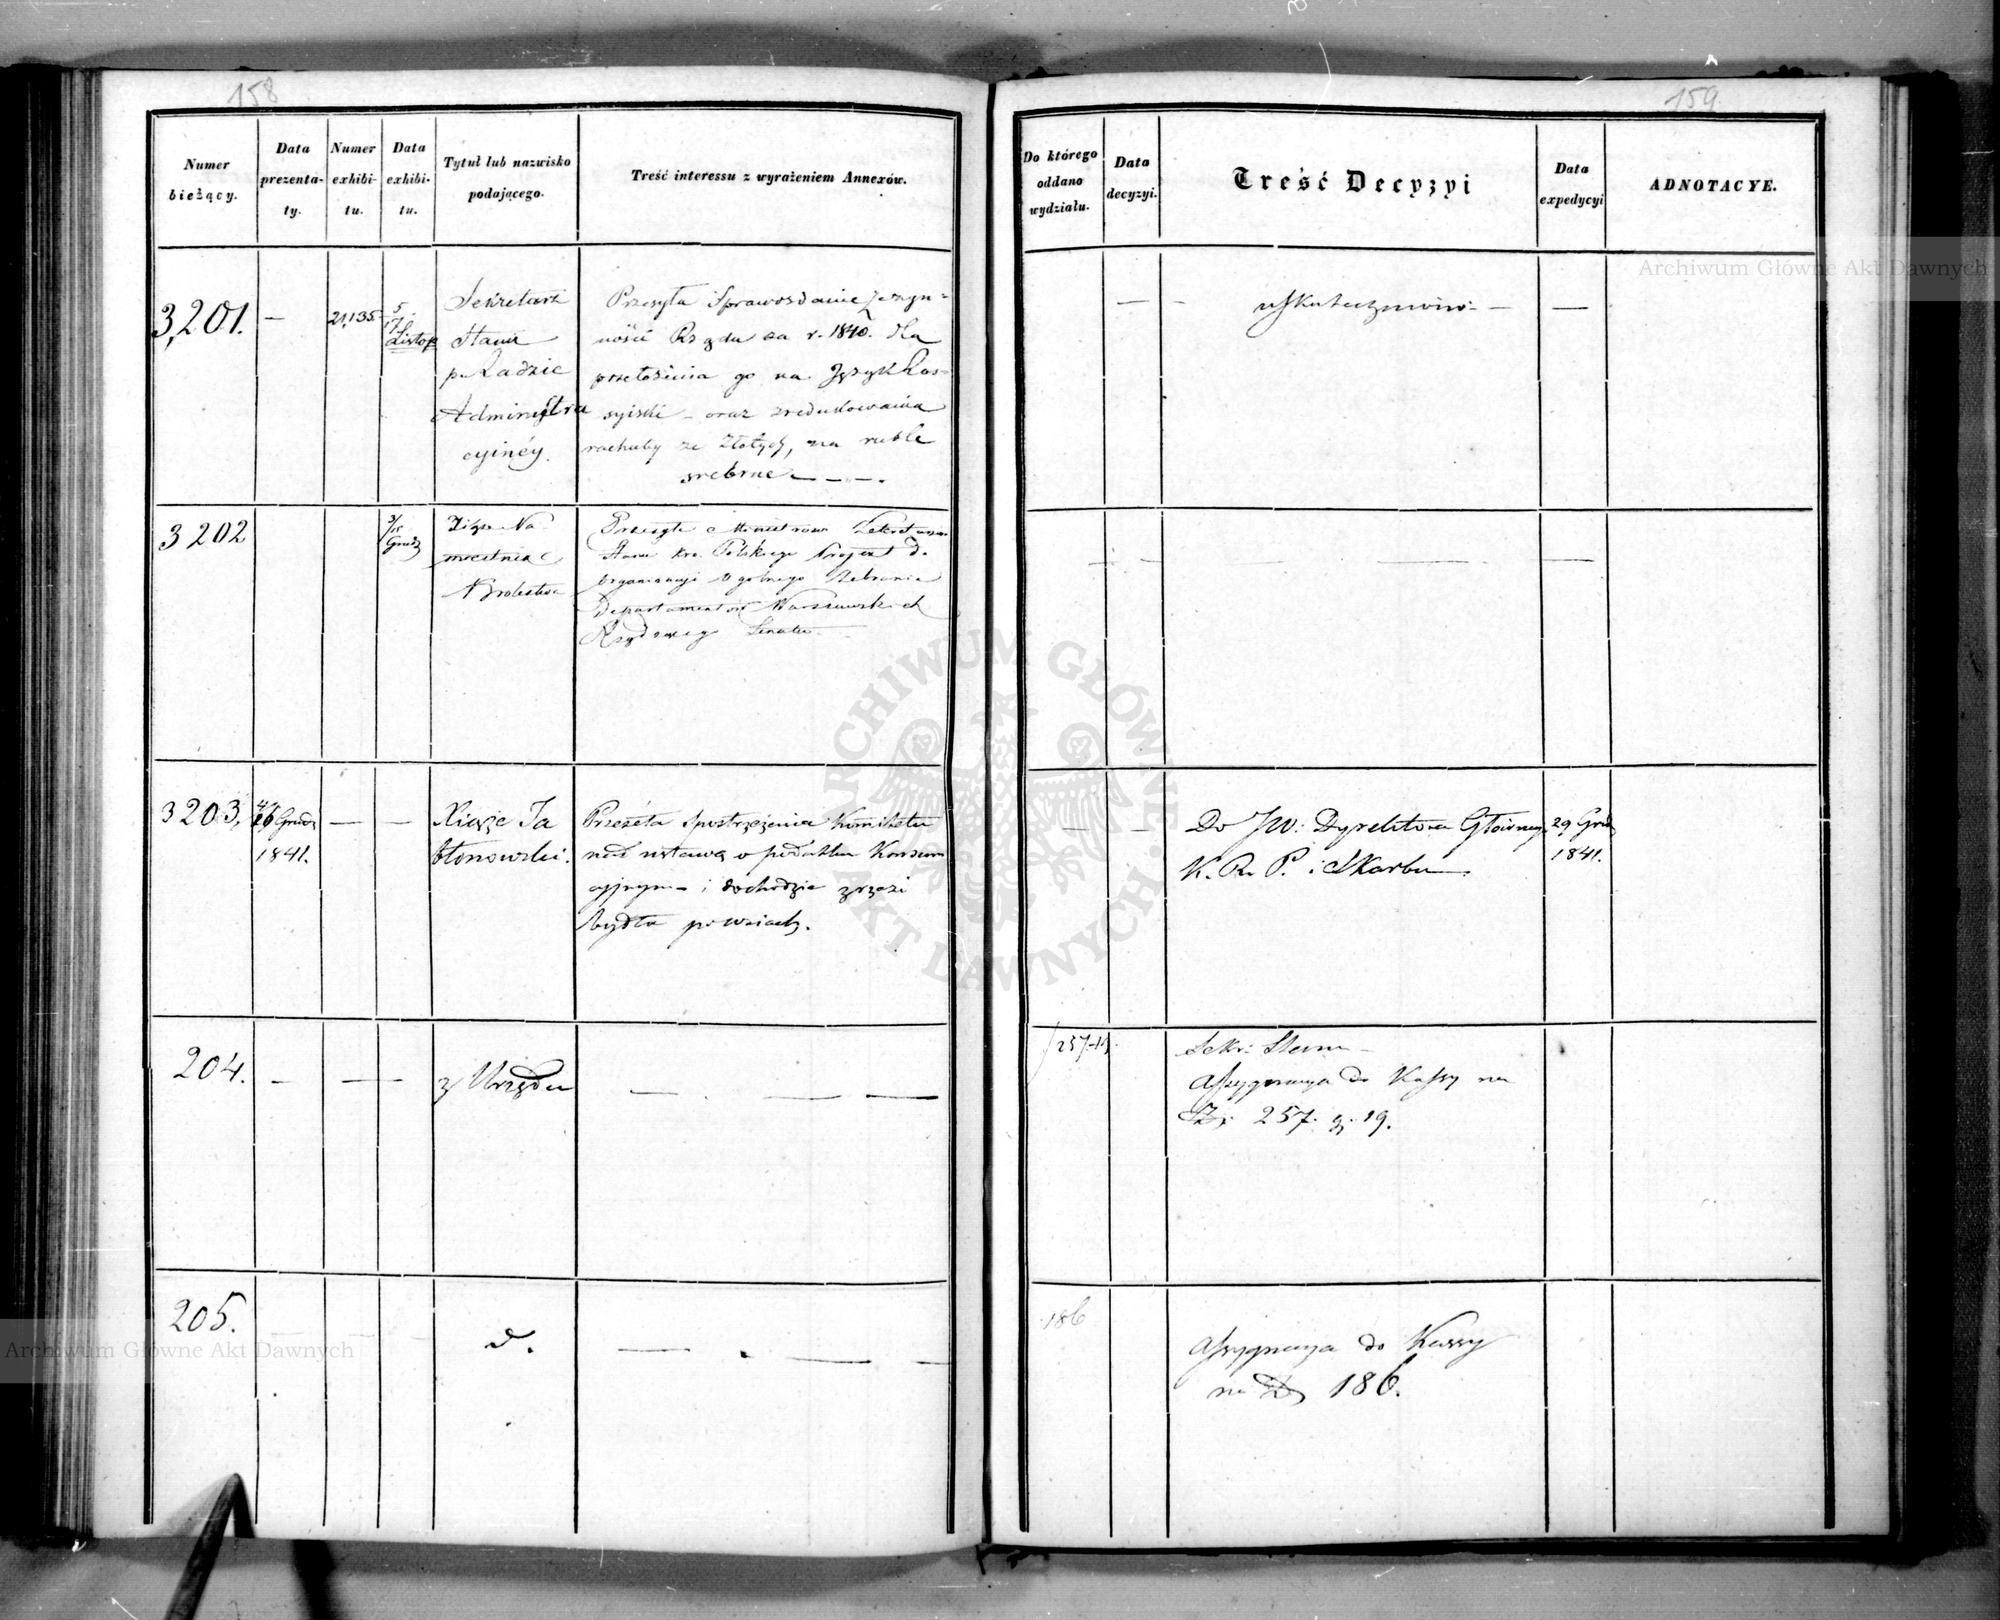 158
Numer bieżący.
Data prezenta-ty.
Numer exhibi-tu.
Data exhibi-tu.
Tytuł lub nazwisko podającego.
Treść interessu z wyrażeniem Annexów.
3,201.
21,135
5/17 Listop
Sekretarz
Stanu
p. Radzie
Administra
cyinéy.
Przesyła Sprawozdanie z czyn-
ność Rządu za r. 1840. dla
przełożenia go na Język Ros-
syiski - oraz zredukowania
rachuby ze Złotych, na ruble
srebrne
3202
3/15 Grud
Xiąże Na
miestnik
Królestwa
Przesyła Ministrowi Sekretarzowi
Stanu Kró. Polskiego Projekt do
organizacji Ogólnego Zebrania
Departamentów Warszawskich
Rządzącego Senatu
3203.
16 Grud
1841.
Xiąże Ja
błonowski.
Przesyła spostrzeżenia Komitetu
nad ustawą o podatku Konsum
cyjnym i dochodzie z rzezi
bydła po wsiach.
204.
z Urzędu
205.
d.
159
Do którego oddano wydziału.
Data decyzyi.
Treść Decyzyi
Data expedycyi
ADNOTACYE.
uskuteczniono
Do JW: Dyrektora Głównego
K. R. P. i Skarbu
29 Grud
1841.
257.19.
Sekr: Stanu
Assygnacya do Kassy na
257. g. 19.
186
Assygnacya do Kassy
na 186.
Archiwum Główne Akt Dawnych
Archiwum Główne Akt Dawnych
ARCHIWUM GŁÓWNE AKT DAWNYCH